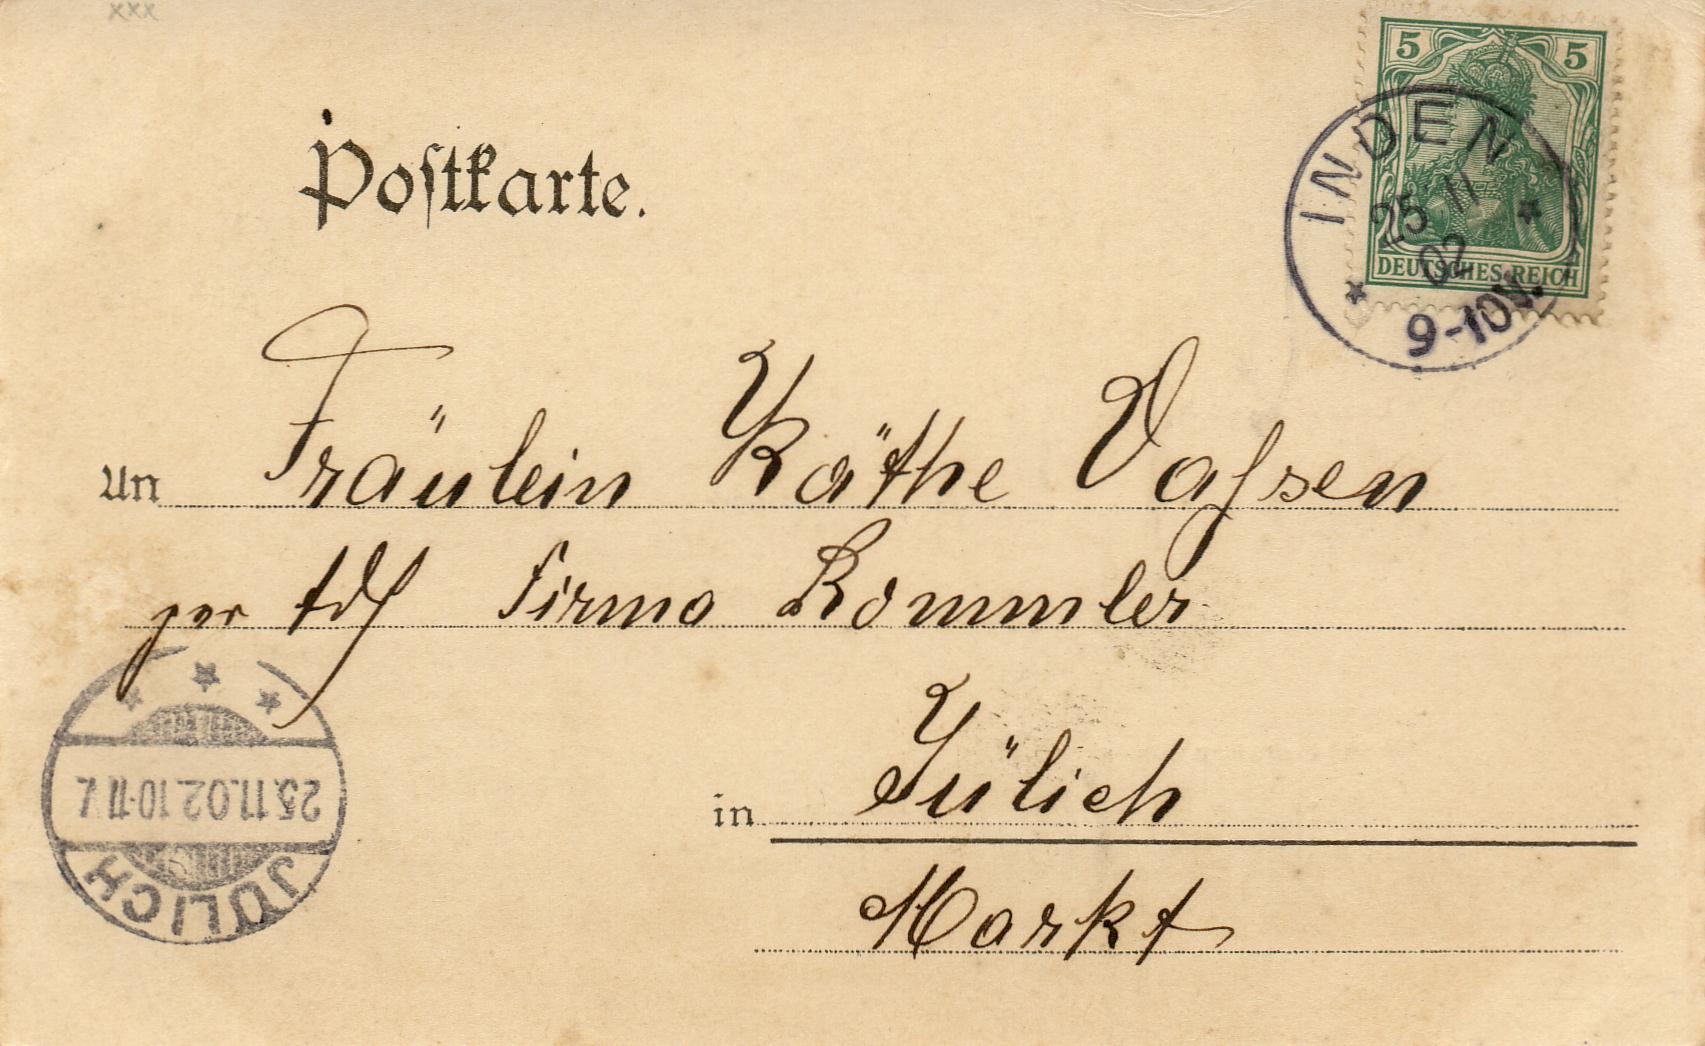 xxx
Postkarte.
5 5
DEUTSCHES REICH
INDEN
25 11
02
9-10V.
An Fräulein Käthe Vahsen
per Adr Firma Rommler
in Jülich
Markt
25.11.02.10-11V.
JÜLICH